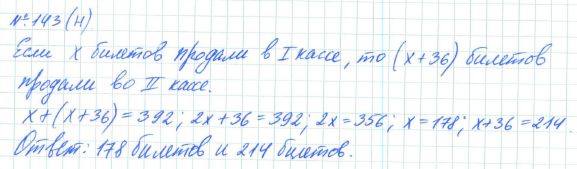 № 143 (н)
Если x билетов продали в I кассе, то (x+36) билетов
продали во II кассе.
x+(x+36)=392; 2x+36=392; 2x=356; x=178; x+36=214.
Ответ: 178 билетов и 214 билетов.